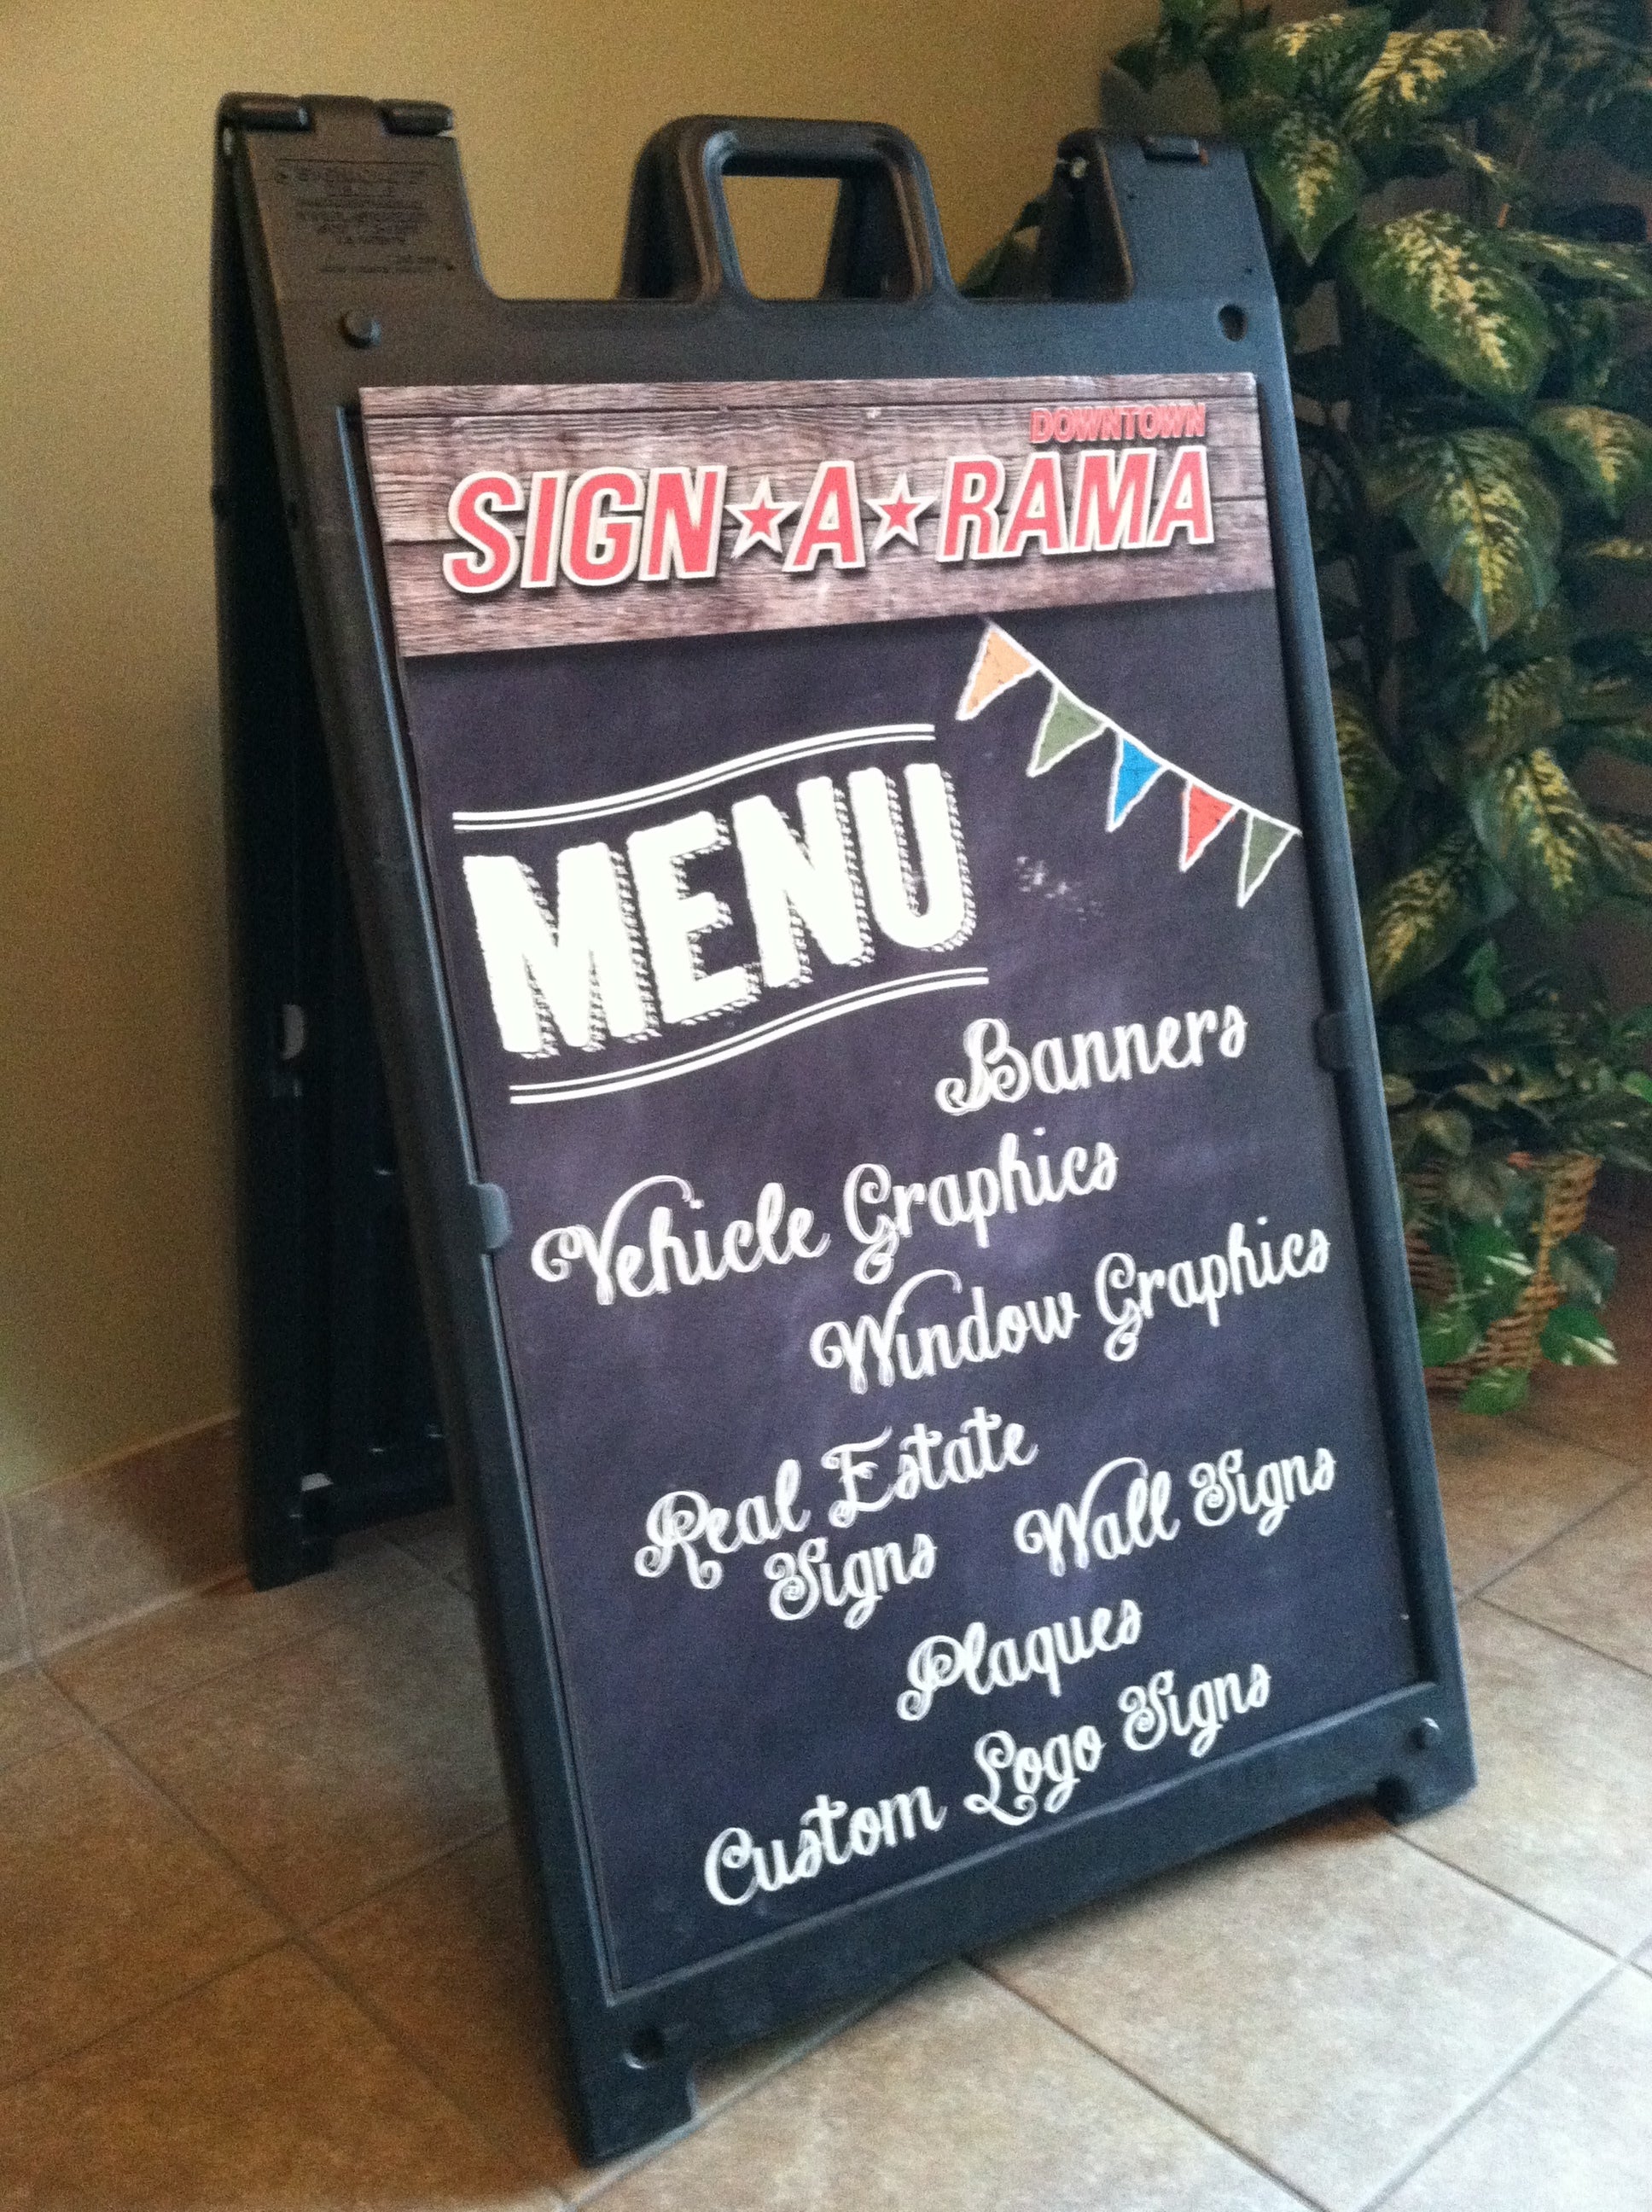 DOWNTOWN
SIGN★A★RAMA
MENU
Banners
Vehicle Graphics
Window Graphics
Real Estate
Signs
Wall Signs
Plaques
Custom Logo Signs